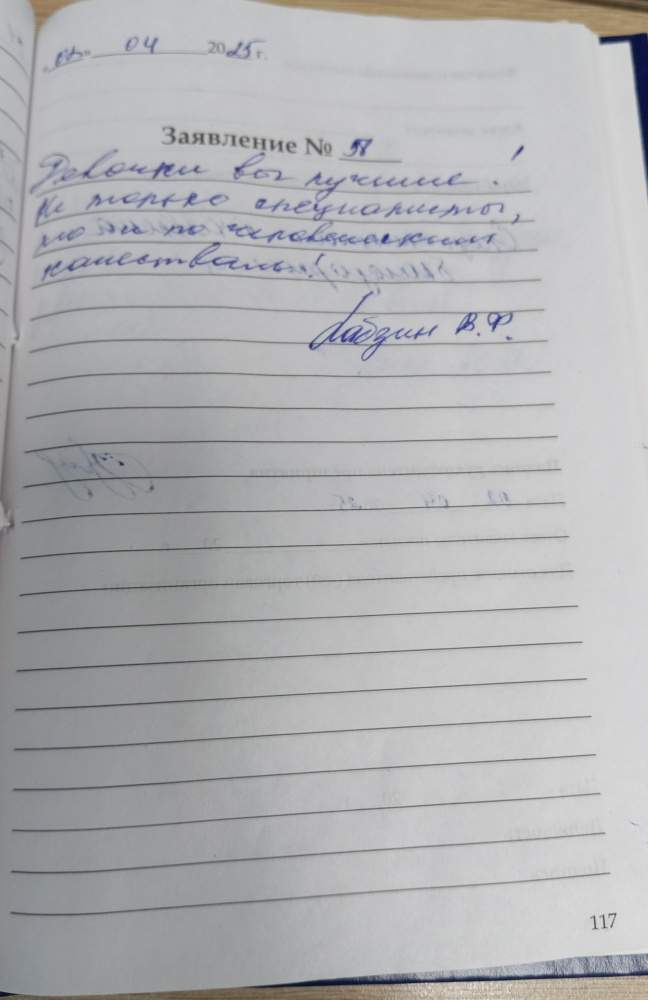 "07" 04 2025 г.
Заявление № 58
Девочки вы лучшие!
Не только специалисты,
но и по человеческим
качествам!
Лабзин В.Ф.
117